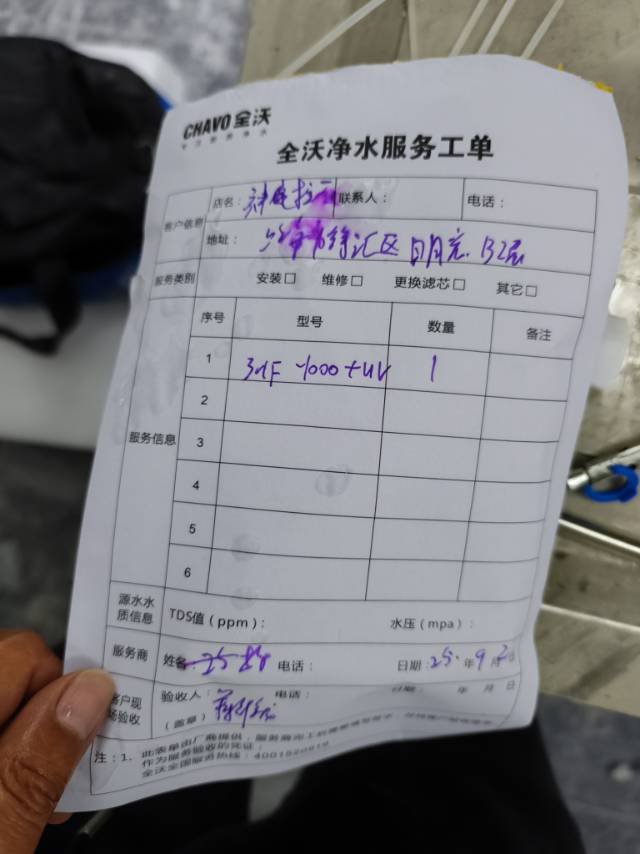 CHAVO 全沃
全沃净水服务工单
客户信息 店名: 联系人: 电话:
地址: 徐汇区 日月光 B2层
服务类别 安装□ 维修□ 更换滤芯□ 其它□
服务信息 序号 型号 数量 备注
1 -1000+UV 1
2
3
4
5
6
源水水质信息 TDS值(ppm): 水压(mpa):
服务商 姓名: 电话: 日期: 25. 年 9 月 日
客户现场验收 验收人: 电话: 日期: 年 月 日
(盖章)
注:1、此表单由厂商提供,
作为服务验收的凭证;
全沃全国服务热线: